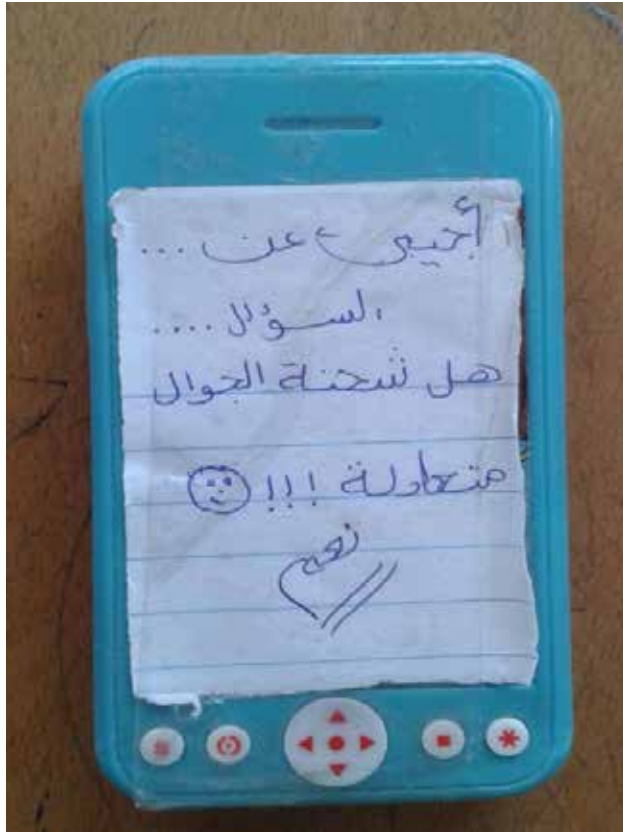 أجيبي عن ...
السؤال ....
هل شحنة الجوال
متعادلة !!!
نعم